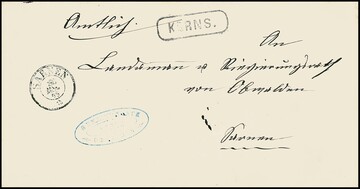 Amtlich.
KERNS.
An
Landammann & Regierungsrath
von Obwalden
SARNEN
Sarnen